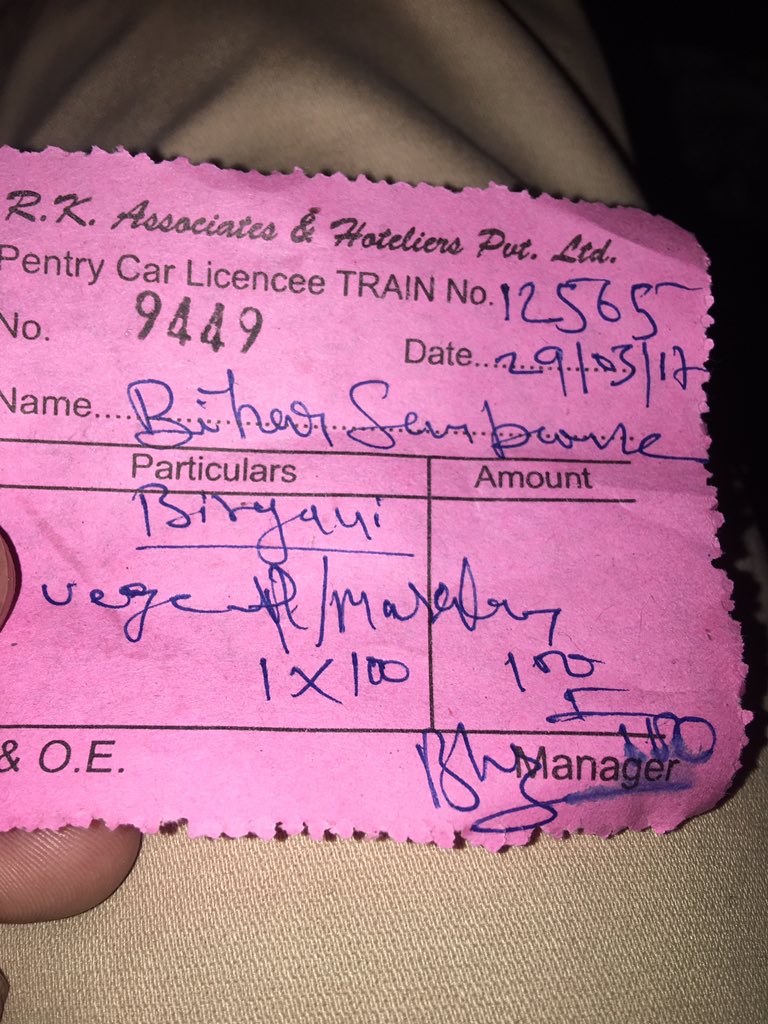 R.K. Associates & Hoteliers Pvt. Ltd.
Pentry Car Licencee TRAIN No. 12565
No. 9449
Date....29/03/17
Name....Bihar
Particulars Amount
Biryani
1 X 100 100
& O.E. Manager